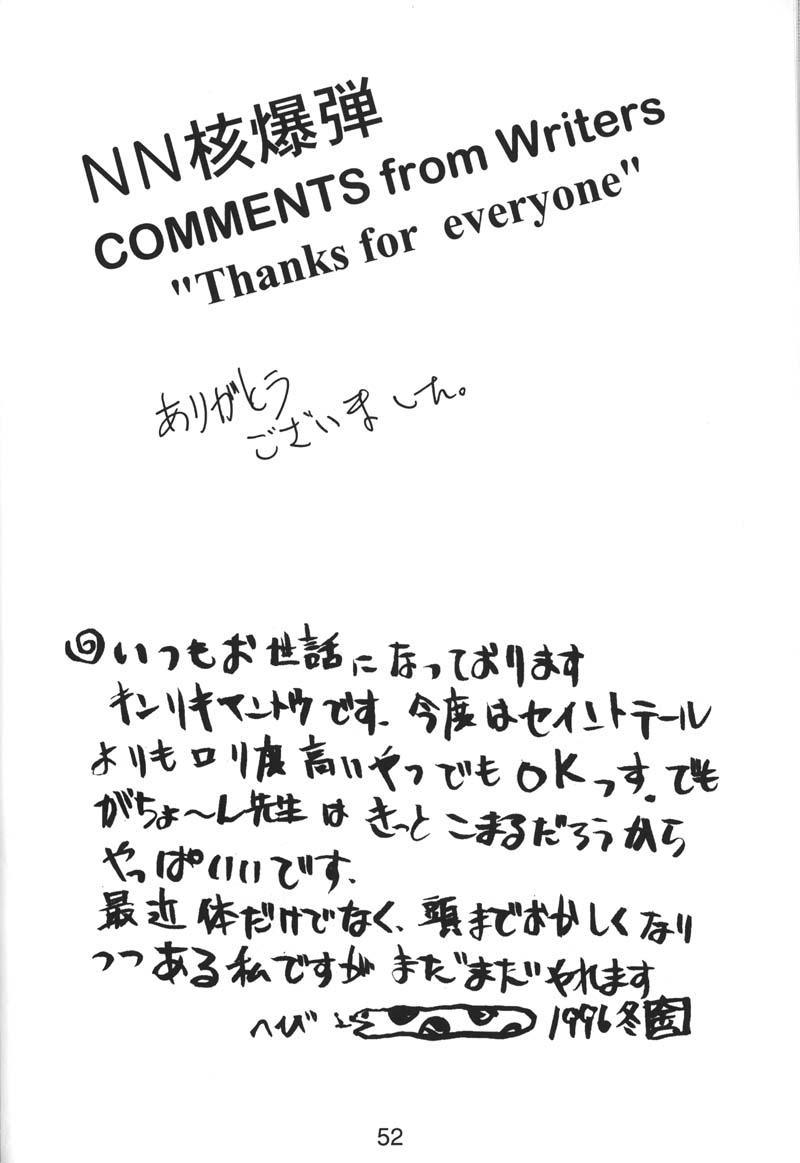 NN核爆弾
COMMENTS from Writers
"Thanks for everyone"
ありがとう
ございました。
いつもお世話になっております
キンリキマントウです。今度はセイントテール
よりもロリ度高いやつでもOKっす。でも
がちょ〜ん先生はきっとこまるだろうから
やっぱいいです。
最近体だけでなく、頭までおかしくなり
つつある私ですがまだまだやれます
へび 1996冬金
52